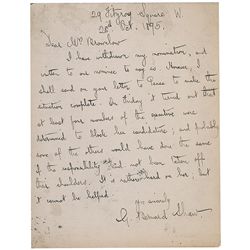 29 Fitzroy Square. W.
28th Oct. 1895.
Dear Mr Brownlow
I have withdrawn my nomination, and
written to our nominee to say so. However, I
shall send on your letter to Pease to make the
situation complete. On Friday it turned out that
at least four members of the executive were
determined to block his candidature; and probably
some of the others would have done the same
if the responsibility had not been taken off
their shoulders. It is rather hard on her, but
it cannot be helped.
yrs sincerely
G. Bernard Shaw